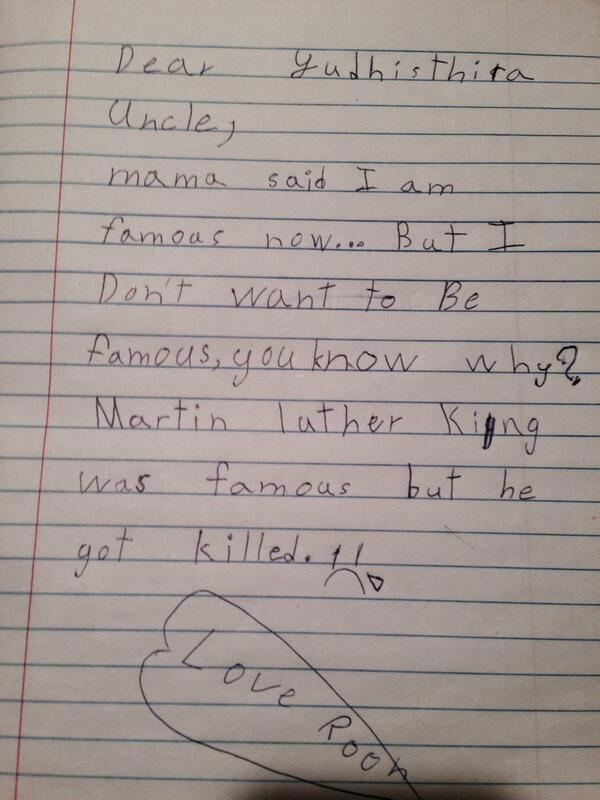 Dear Yudhisthira
Uncle,
mama said I am
famous now... But I
Don't want to Be
famous, you know why?
Martin luther King
was famous but he
got killed.
Love